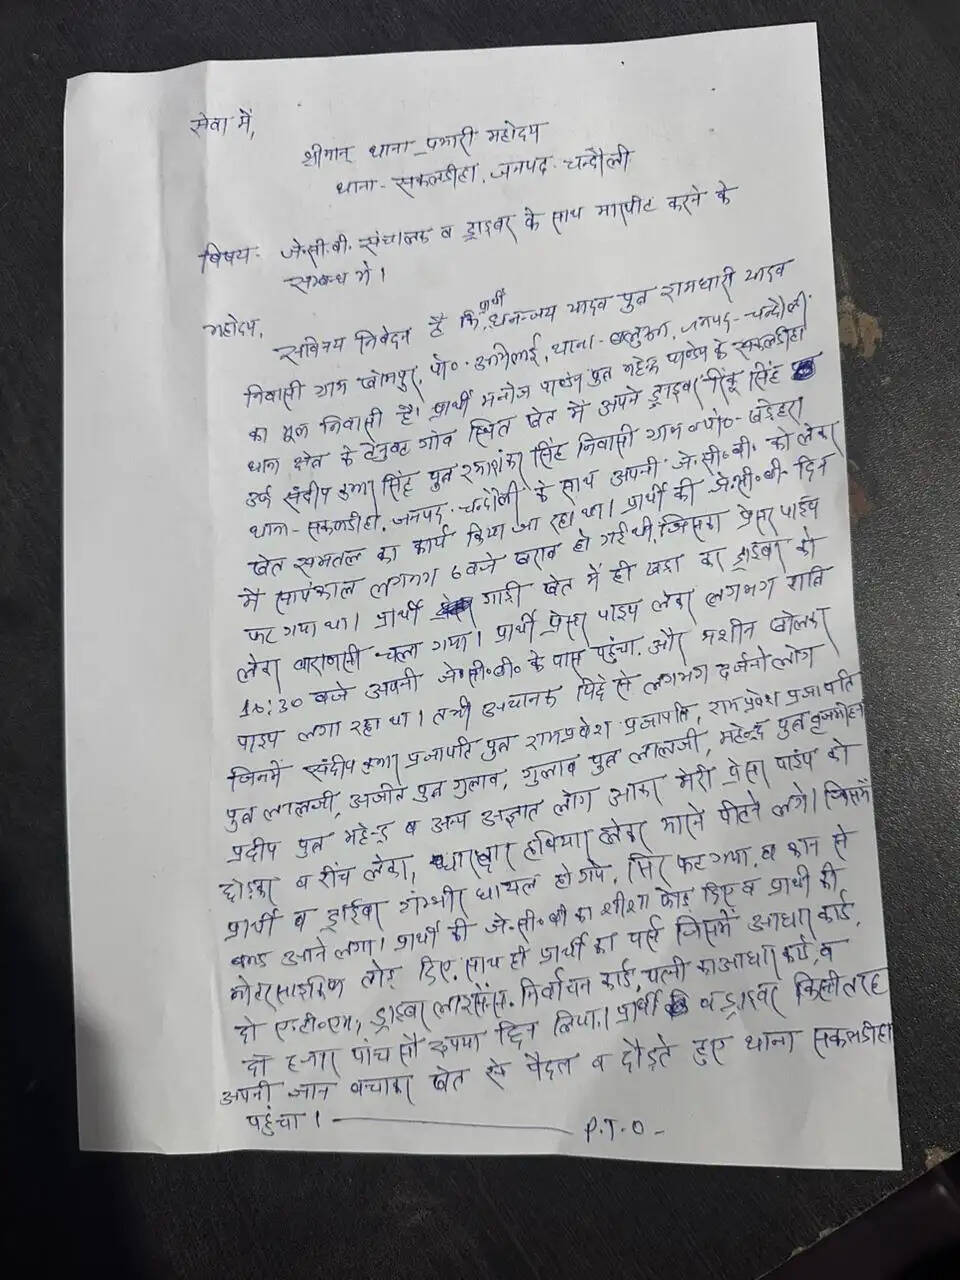 सेवा में,
श्रीमान् थाना प्रभारी महोदय
थाना - सकलडीहा, जनपद - चन्दौली
विषय - जे०सी०बी० संचालक व ड्राइवर के साथ मारपीट करने के
सम्बन्ध में।
महोदय,
सविनय निवेदन है कि प्रार्थी धनन्जय यादव पुत्र रामधारी यादव
निवासी ग्राम पो० थाना - जनपद - चन्दौली
का मूल निवासी है। प्रार्थी मनोज पाण्डेय पुत्र महेन्द्र पाण्डेय के सकलडीहा
थाना क्षेत्र के गाँव स्थित खेत में अपने ड्राइवर रिंकू सिंह
उर्फ संदीप कुमार सिंह पुत्र रमाशंकर सिंह निवासी ग्राम व पो० -
थाना - सकलडीहा, जनपद - चन्दौली के साथ अपनी जे०सी०बी० को लेकर
खेत समतल का कार्य किया जा रहा था। प्रार्थी की जे०सी०बी० दिन
में सायंकाल लगभग 6 बजे खराब हो गई थी, जिसका प्रेसर पाईप
फट गया था। प्रार्थी गाड़ी खेत में ही खड़ा कर ड्राइवर को
लेकर वाराणसी चला गया। प्रार्थी प्रेसर पाइप लेकर लगभग रात्रि
10:30 बजे अपनी जे०सी०बी० के पास पहुंचा. और मशीन खोलकर
पाइप लगा रहा था। तभी अचानक पिछे से लगभग दर्जनो लोग
जिनमें संदीप कुमार प्रजापति पुत्र रामप्रवेश प्रजापति, रामप्रवेश प्रजापति
पुत्र लालजी, अजीत पुत्र गुलाब, गुलाब पुत्र लालजी, महेन्द्र पुत्र बृजमोहन
प्रदीप पुत्र महेन्द्र व अन्य अज्ञात लोग आकर मेरी प्रेसर पाईप को
छीनकर व रींच लेकर, धारदार हथियार लेकर मारने पीटने लगे। जिसमें
प्रार्थी व ड्राईवर गंम्भीर घायल हो गये, सिर फट गया, व कान से
ब्लड आने लगा। प्रार्थी की जे०सी०बी का शीशा फोड़ दिए व प्रार्थी की
मोटरसाइकिल तोड़ दिए. साथ ही प्रार्थी का पर्स जिसमें आधार कार्ड,
दो ए०टी०एम, ड्राइवर लाइसेंस. निर्वाचन कार्ड, पत्नी का आधार कार्ड, व
दो हजार पांच सौ रूपया छिन लिया। प्रार्थी व ड्राइवर किसी तरह
अपनी जान बचाकर खेत से पैदल व दौड़ते हुए थाना सकलडीहा
पहुंचा। P.T.O -